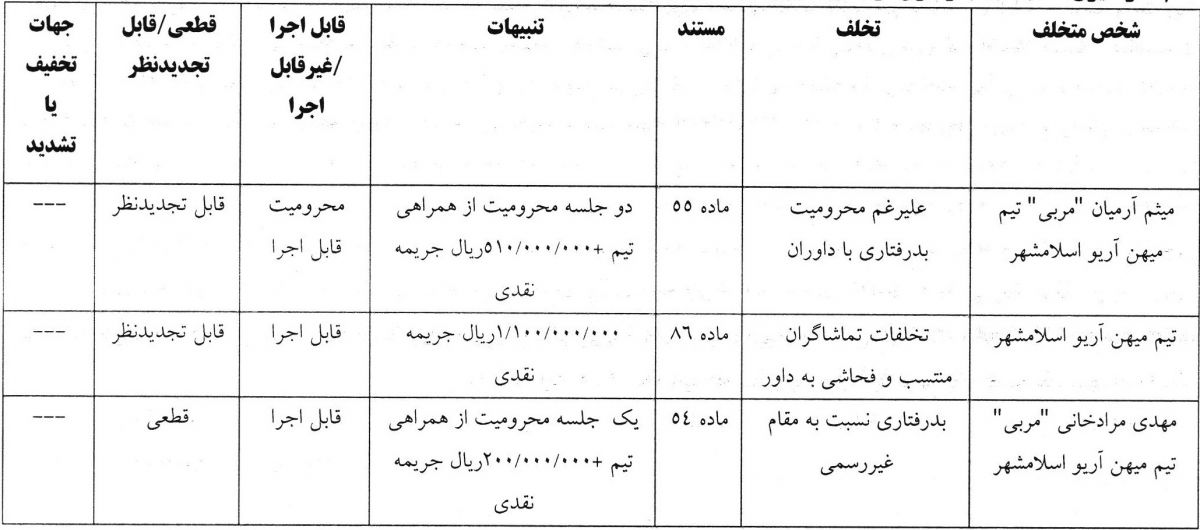 شخص متخلف
تخلف
مستند
تنبیهات
قابل اجرا
/غیرقابل
اجرا
قطعی/قابل
تجدیدنظر
جهات
تخفیف
یا
تشدید
میثم آرمیان "مربی" تیم
میهن آریو اسلامشهر
علیرغم محرومیت
بدرفتاری با داوران
ماده ٥٥
دو جلسه محرومیت از همراهی
تیم +٥١٠/٠٠٠/٠٠٠ریال جریمه
نقدی
محرومیت
قابل اجرا
قابل تجدیدنظر
---
تیم میهن آریو اسلامشهر
تخلفات تماشاگران
منتسب و فحاشی به داور
ماده ٨٦
١/١٠٠/٠٠٠/٠٠٠ریال جریمه
نقدی
قابل اجرا
قابل تجدیدنظر
---
مهدی مرادخانی "مربی"
تیم میهن آریو اسلامشهر
بدرفتاری نسبت به مقام
غیررسمی
ماده ٥٤
یک جلسه محرومیت از همراهی
تیم +٢٠٠/٠٠٠/٠٠٠ریال جریمه
نقدی
قابل اجرا
قطعی
---